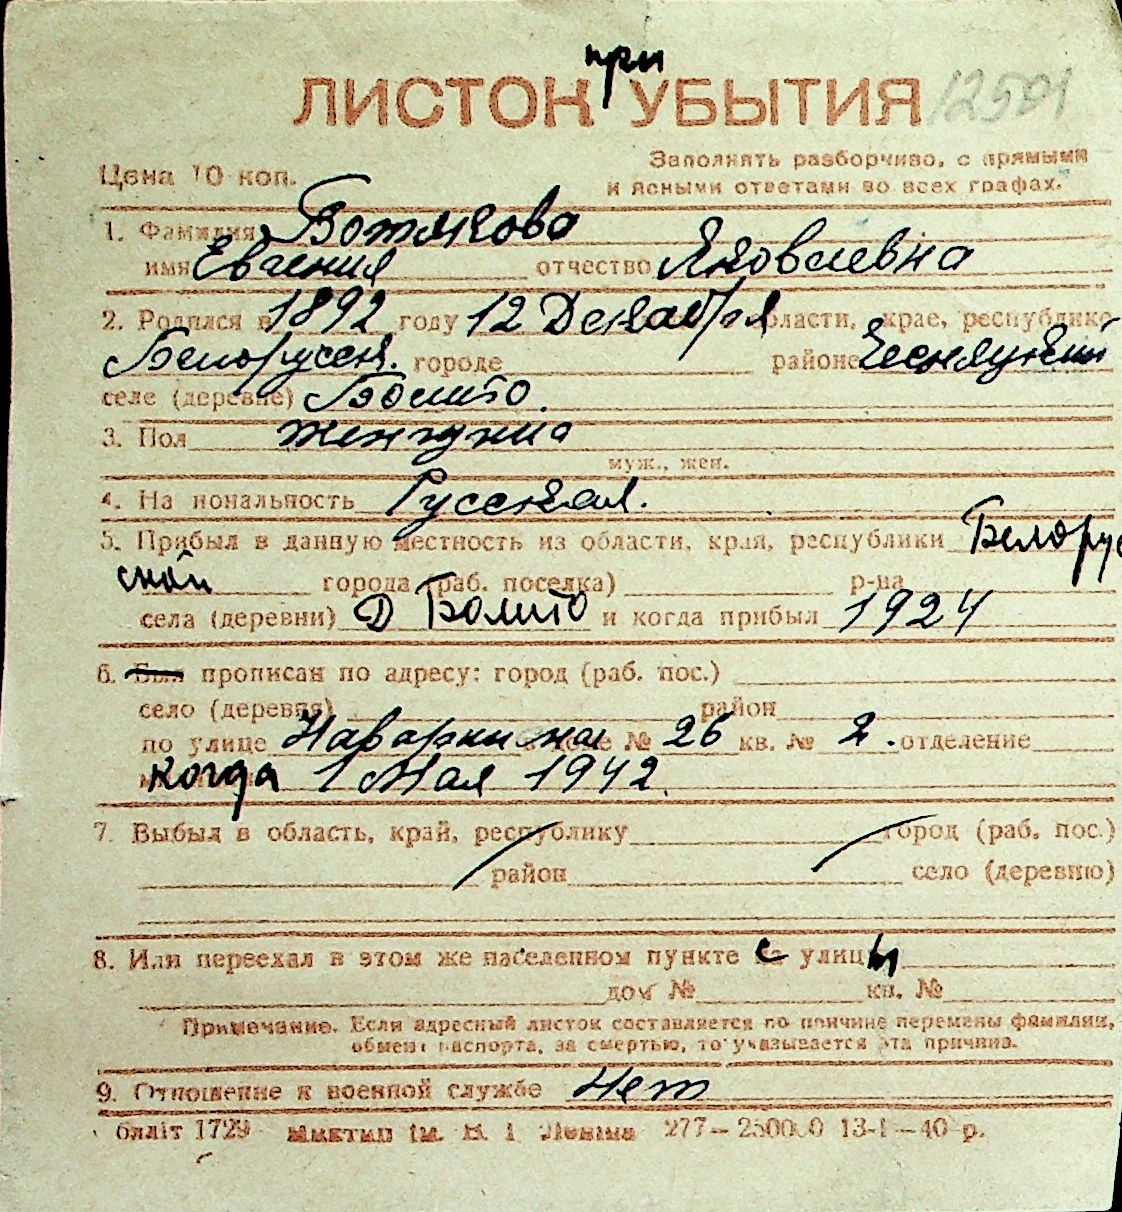 при
ЛИСТОК УБЫТИЯ 12501
Цена 10 коп. Заполнять разборчиво, с прямыми
и ясными ответами во всех графах.
1. Фамилия Вотякова
имя Евгения отчество Яковлевна
2. Родился в 1892 году 12 Декабря области, крае, республике
Белорусск. городе районе
селе (деревне) Болито.
3. Пол женщина
муж., жен.
4. Национальность Русская.
5. Прибыл в данную местность из области, края, республики Белорус
ской города (раб. поселка) р-на
села (деревни) Д Болито и когда прибыл 1924
6. Был прописан по адресу: город (раб. пос.)
село (деревня) район
по улице доме № 26 кв. № 2. отделение
когда 1 Мая 1942.
7. Выбыл в область, край, республику город (раб. пос.)
район село (деревню)
8. Или переехал в этом же населенном пункте с улицы
дом № кв. №
Примечание. Если адресный листок составляется по причине перемены фамилии,
обмена паспорта, за смертью, то указывается эта причина.
9. Отношение к военной службе Нет
1729 277—250000 13-I—40 р.